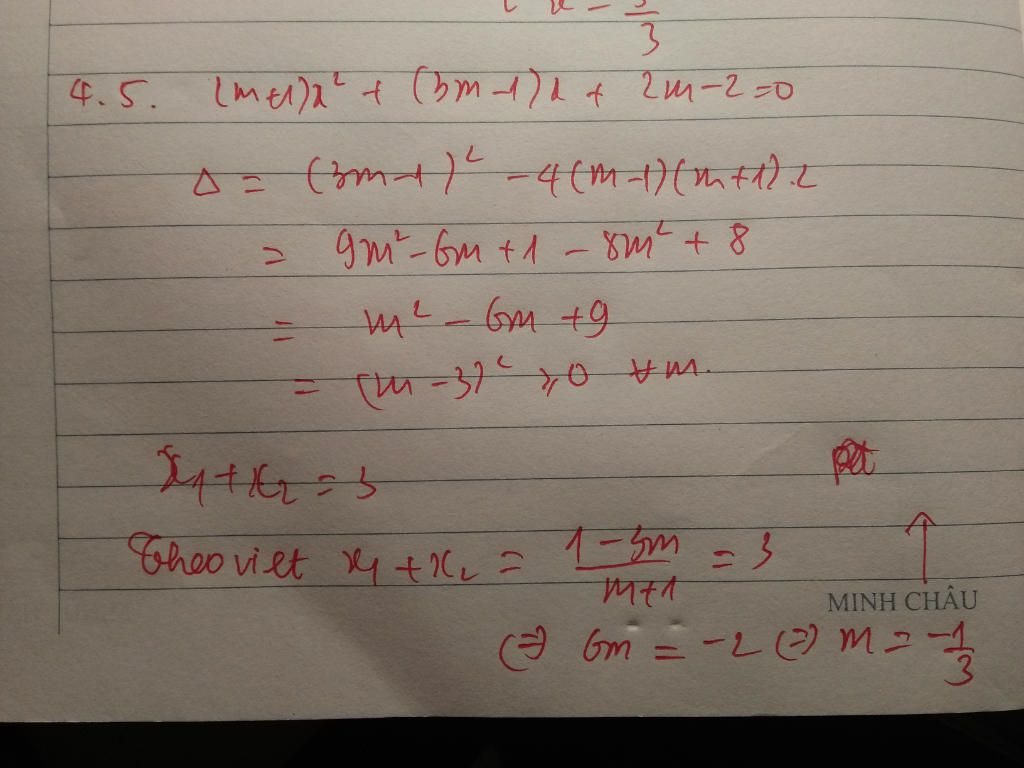 3
4.5. (m+1)x² + (3m-1)x + 2m-2=0
Δ = (3m-1)² - 4(m-1)(m+1).2
= 9m²-6m+1 - 8m² + 8
= m² - 6m +9
= (m-3)² ≥0 ∀m.
x₁+x₂ = 3
Theo viet x₁ + x₂ = (1-3m)/(m+1) = 3
MINH CHÂU
(=) 6m = -2 (=) m = -1/3